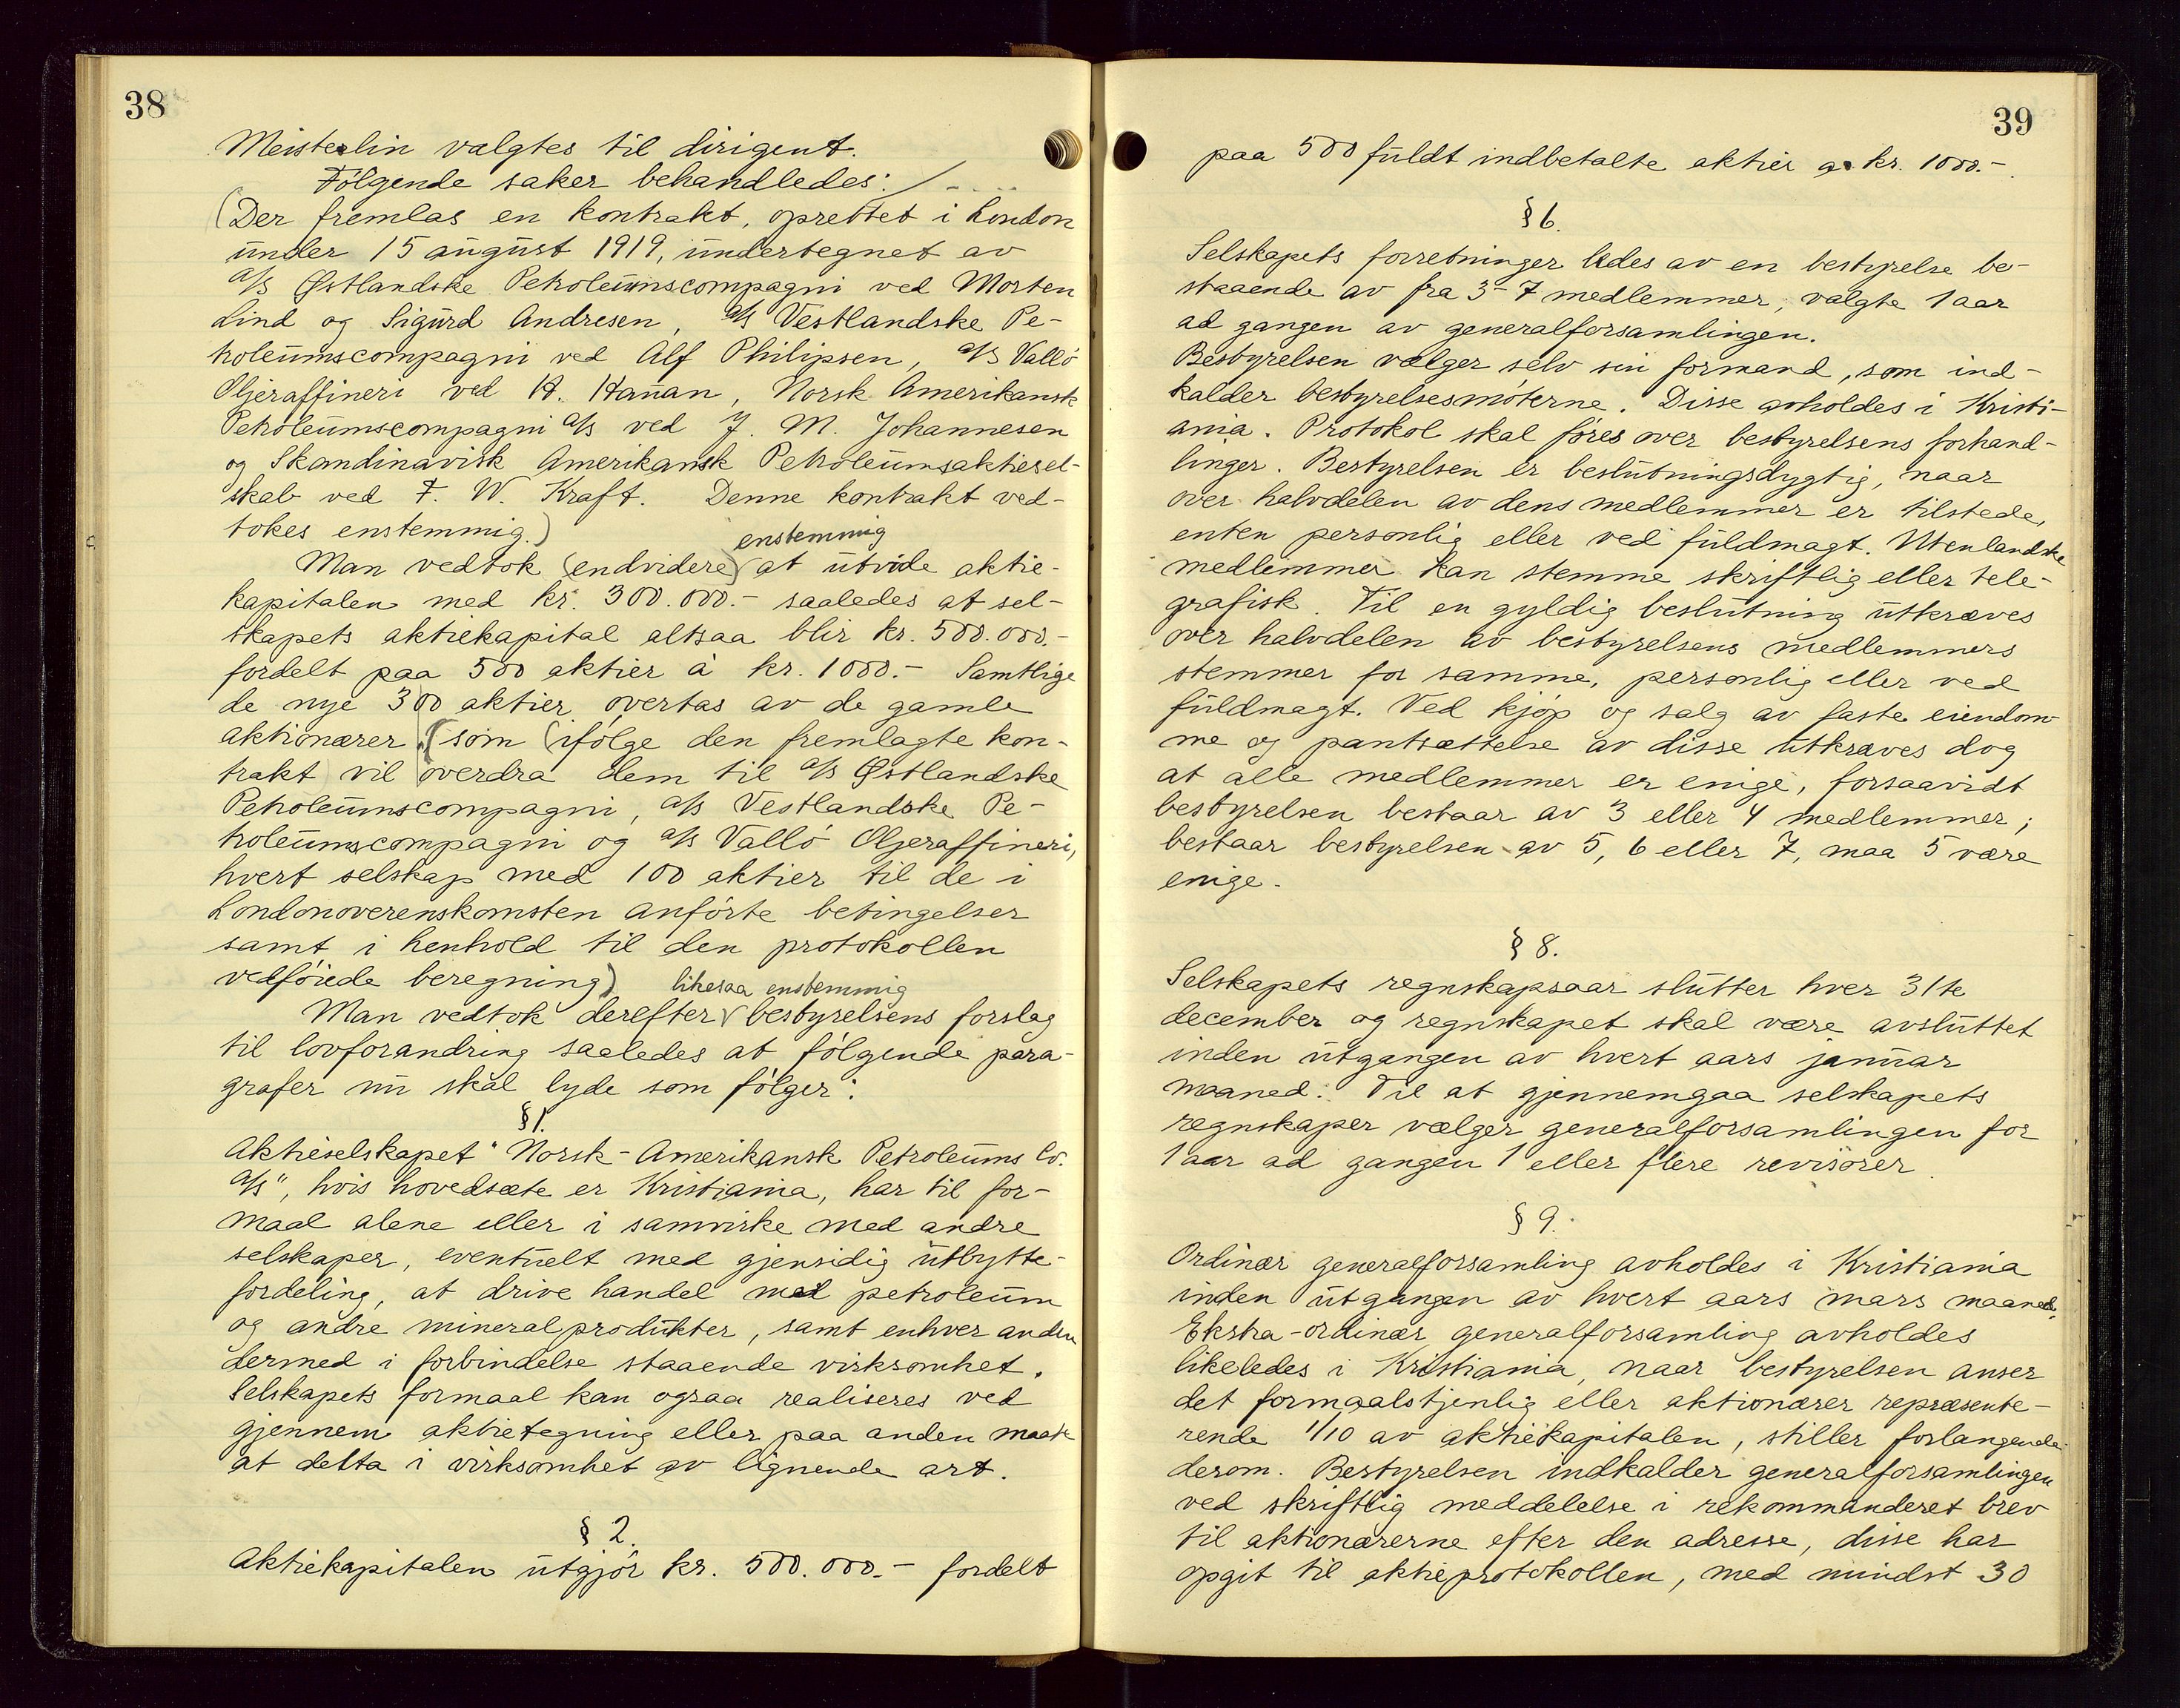 38
Meisterlin valgtes til dirigent.
Følgende saker behandledes:
(Der fremlas en kontrakt, oprettet i London
under 15 august 1919, undertegnet av
A/S Østlandske Petroleumscompagni ved Morten
Lind og Sigurd Andresen, A/S Vestlandske Pe-
troleumscompagni ved Alf Philipsen, A/S Vallö
Oljeraffineri ved H. Hannan, Norsk Amerikansk
Petroleumscompagni A/S ved J. M. Johannesen
og Skandinavisk Amerikansk Petroleumsaktiesel-
skab ved F. W. Kraft. Denne kontrakt ved-
tokes enstemmig.)
enstemmig
Man vedtok (endvidere) at utvide aktie-
kapitalen med kr. 300.000.- saaledes at sel-
skapets aktiekapital altsaa blir kr. 500.000.-
fordelt paa 500 aktier á kr. 1000.- Samtlige
de nye 300 aktier overtas av de gamle
aktionærer, (som (ifölge den fremlagte kon-
trakt) vil overdra dem til A/S Østlandske
Petroleumscompagni, A/S Vestlandske Pe-
troleumscompagni og A/S Vallö Oljeraffineri,
hvert selskap med 100 aktier til de i
Londonoverenskomsten anförte betingelser
samt i henhold til den protokollen
vedföiede beregning)
likesaa enstemmig
Man vedtok derefter bestyrelsens forslag
til lovforandring saaledes at fölgende para-
grafer nu skal lyde som fölger:
§ 1.
Aktieselskapet "Norsk-Amerikansk Petroleums Co.
A/S", hvis hovedsæte er Kristiania, har til for-
maal alene eller i samvirke med andre
selskaper, eventuelt med gjensidig utbytte-
fordeling, at drive handel med petroleum
og andre mineralprodukter, samt enhver anden
dermed i forbindelse staaende virksomhet.
Selskapets formaal kan ogsaa realiseres ved
gjennem aktietegning eller paa anden maate
at delta i virksomhet av lignende art.
§ 2.
Aktiekapitalen utgjör kr. 500.000.- fordelt
39
paa 500 fuldt indbetalte aktier a kr. 1000.-
§ 6.
Selskapets forretninger ledes av en bestyrelse be-
staaende av fra 3-7 medlemmer, valgte 1 aar
ad gangen av generalforsamlingen.
Bestyrelsen vælger selv sin formand, som ind-
kalder bestyrelsesmöterne. Disse avholdes i Kristi-
ania. Protokol skal föres over bestyrelsens forhand-
linger. Bestyrelsen er beslutningsdygtig, naar
over halvdelen av dens medlemmer er tilstede,
enten personlig eller ved fuldmagt. Utenlandske
medlemmer kan stemme skriftlig eller tele-
grafisk. Til en gyldig beslutning utkræves
over halvdelen av bestyrelsens medlemmers
stemmer for samme, personlig eller ved
fuldmagt. Ved kjøp og salg av faste eiendom-
me og pantsættelse av disse utkræves dog
at alle medlemmer er enige, forsaavidt
bestyrelsen bestaar av 3 eller 4 medlemmer;
bestaar bestyrelsen av 5, 6 eller 7, maa 5 være
enige.
§ 8.
Selskapets regnskapsaar slutter hver 31te
december og regnskapet skal være avsluttet
inden utgangen av hvert aars januar
maaned. Til at gjennemgaa selskapets
regnskaper vælger generalforsamlingen for
1 aar ad gangen 1 eller flere revisorer.
§ 9.
Ordinær generalforsamling avholdes i Kristiania
inden utgangen av hvert aars mars maaned.
Ekstra-ordinær generalforsamling avholdes
likeledes i Kristiania, naar bestyrelsen anser
det formaalstjenlig eller aktionærer repræsente-
rende 1/10 av aktiekapitalen, stiller forlangende
derom. Bestyrelsen indkalder generalforsamlingen
ved skriftlig meddelelse i rekommanderet brev
til aktionærerne efter den adresse, disse har
opgit til aktieprotokollen, med mindst 30